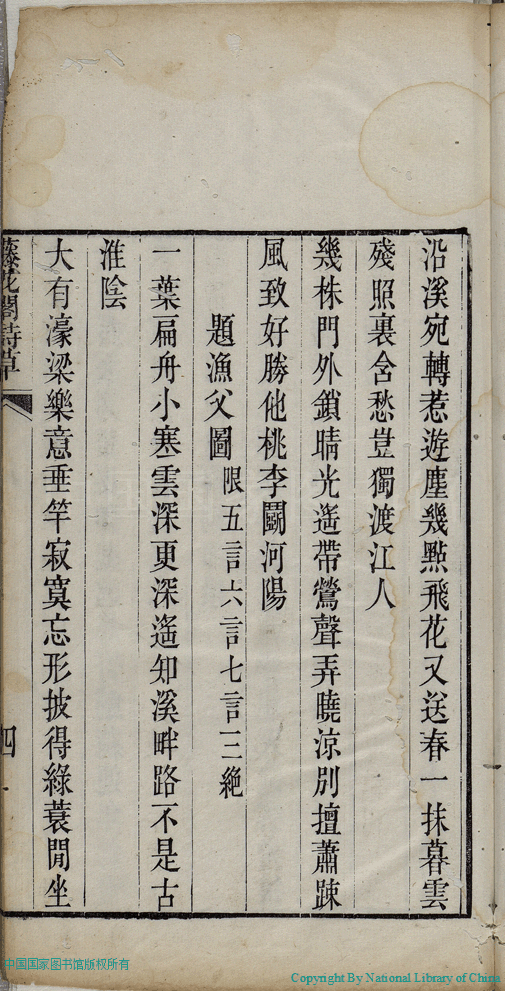 沿溪宛轉惹遊塵幾點飛花又送春一抹暮雲
殘照裏含愁豈獨渡江人
幾株門外鎖晴光遙帶鶯聲弄曉涼別擅蕭踈
風致好勝他桃李鬭河陽
題漁父圖限五言六言七言三絶
一葉扁舟小寒雲深更深遙知溪畔路不是古
淮陰
大有濠梁樂意垂竿寂寞忘形披得綠蓑閒坐
藤花閣詩草
四
中国国家图书馆版权所有
Copyright By National Library of China